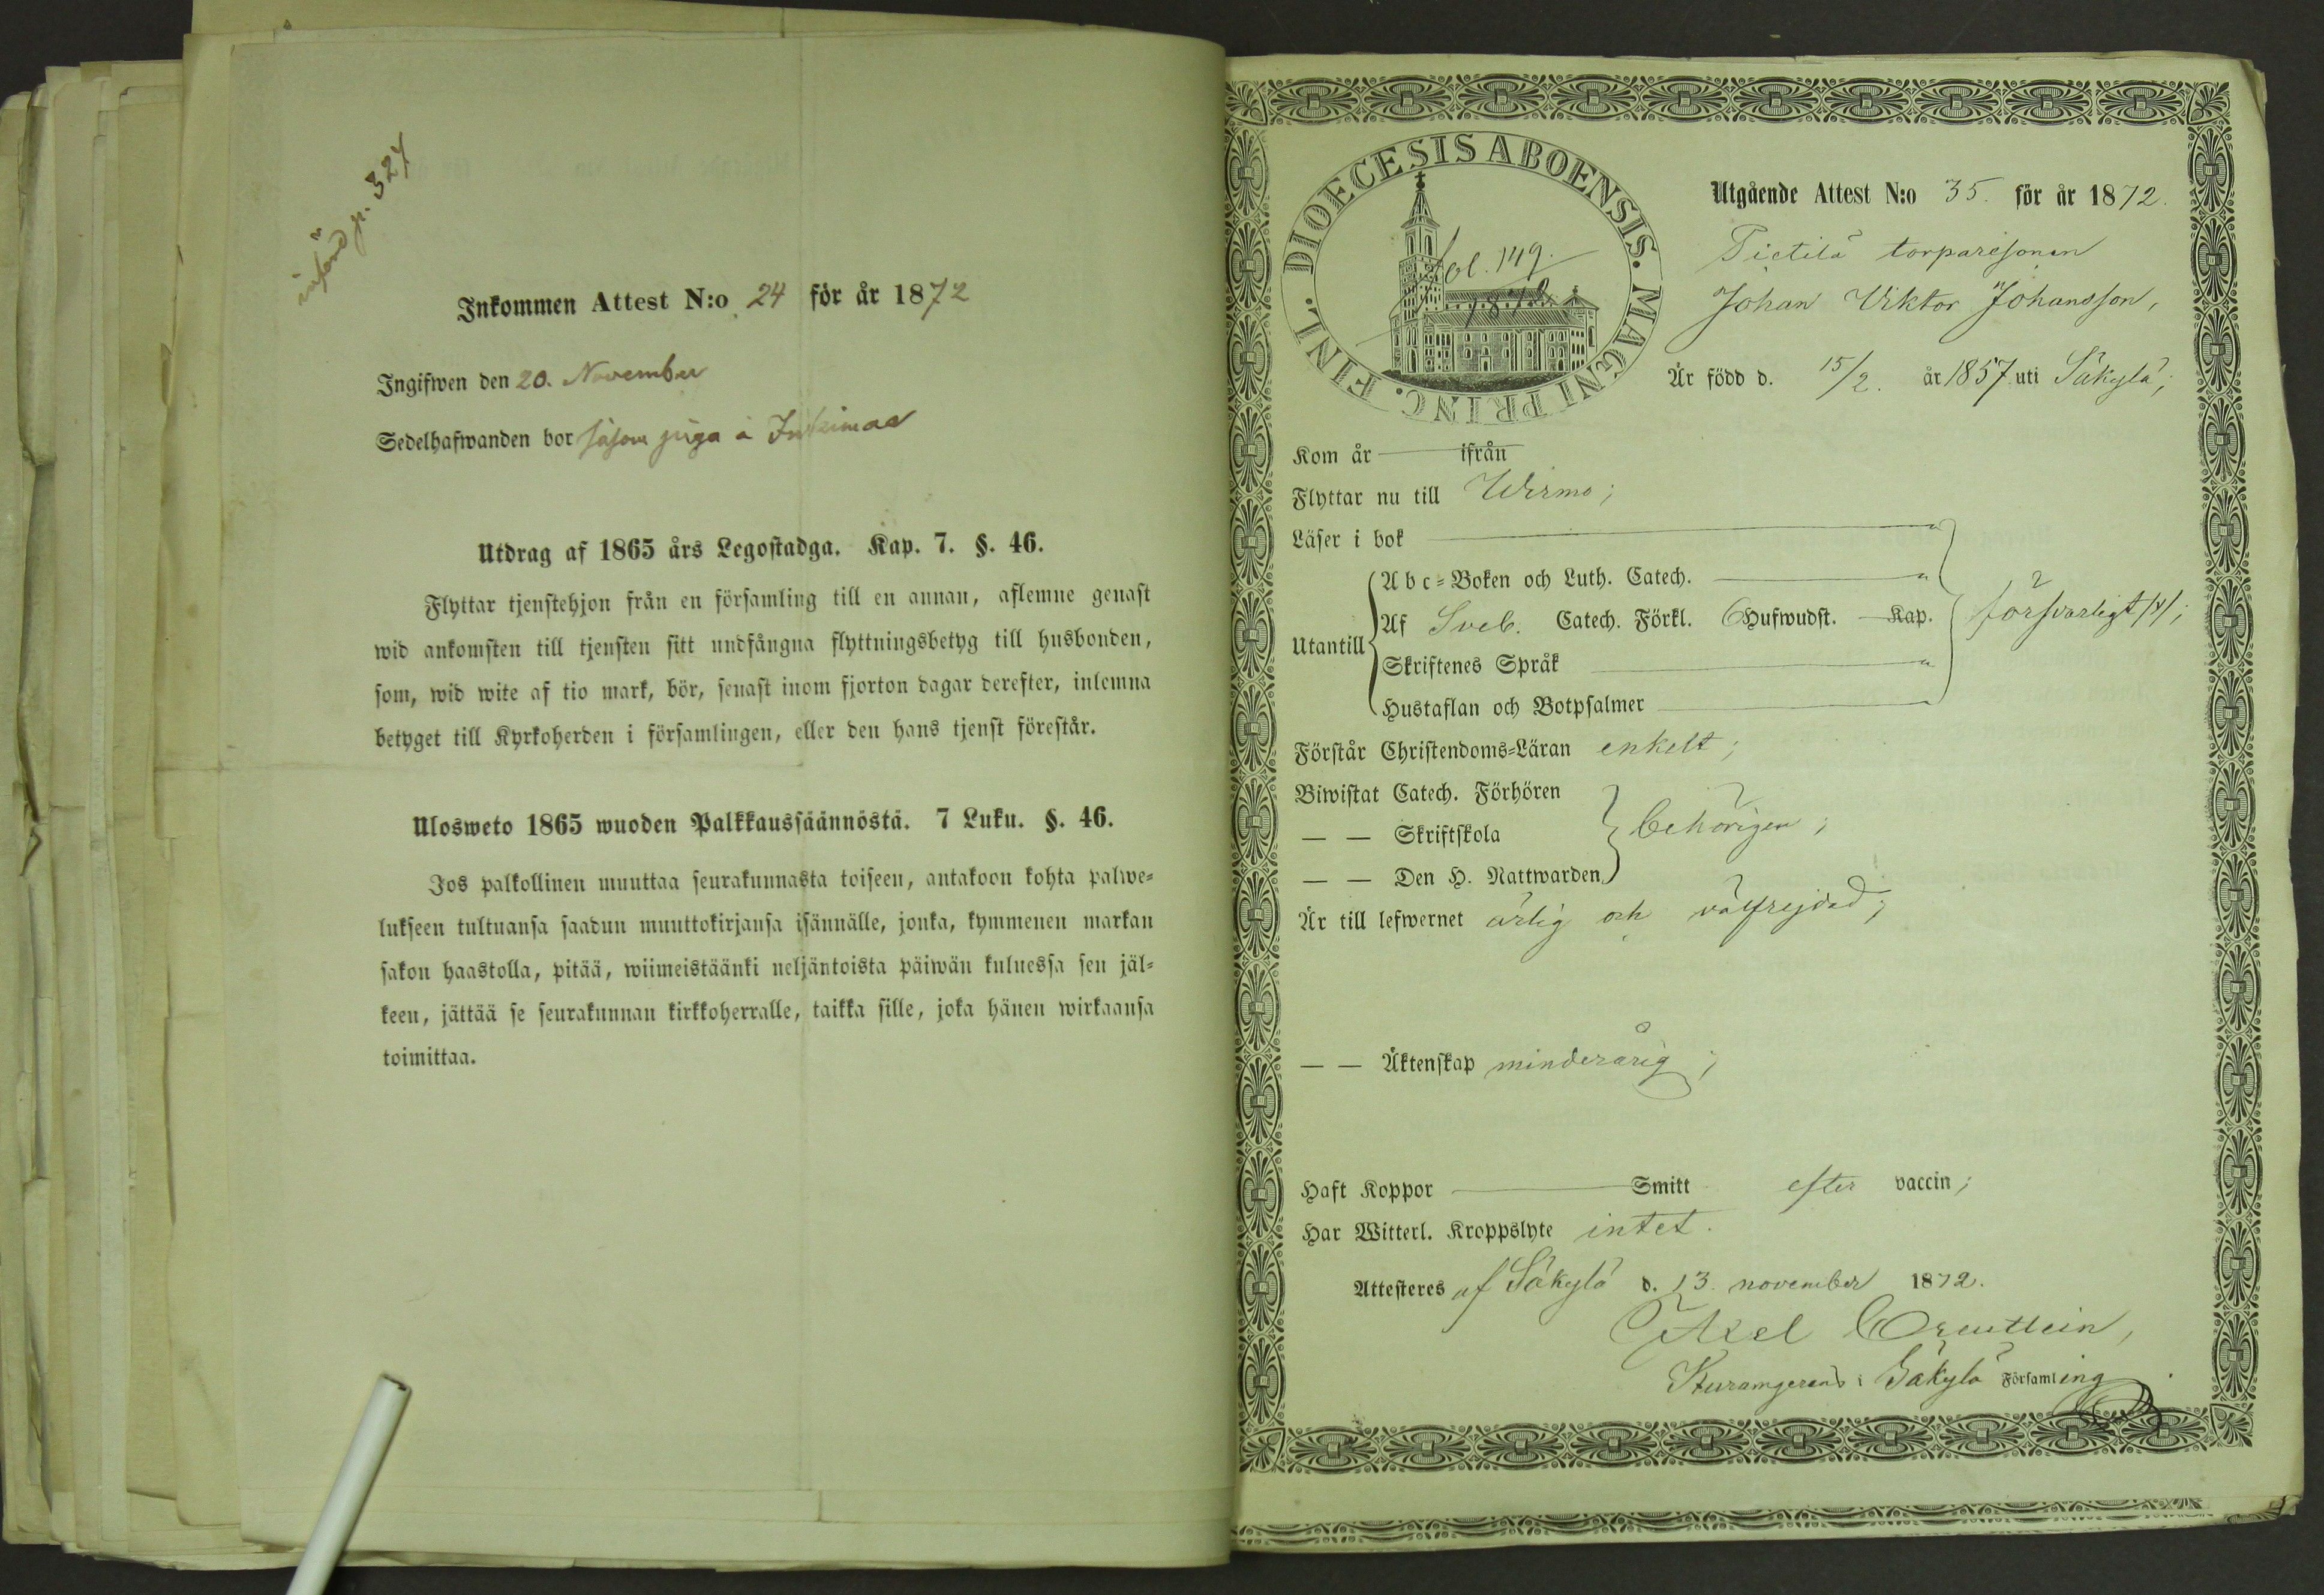 införd p. 324
Inkommen Attest N:o 24 för år 1872
Ingifwen den 20. November
Sedelhafwanden bor såsom piga å
Utdrag af 1865 års Legostadga. Kap. 7. §. 46.
Flyttar tjenstehjon från en församling till en annan, aflemne genast
wid ankomsten till tjensten sitt undfångna flyttningsbetyg till husbonden,
som, wid wite af tio mark, bör, senast inom fjorton dagar derefter, inlemna
betyget till Kyrkoherden i församlingen, eller den hans tjenst förestår.
Ulosweto 1865 wuoden Palkkaussäännöstä. 7 Luku. §. 46.
Jos palkollinen muuttaa seurakunnasta toiseen, antakoon kohta palwe-
lukseen tultuansa saadun muuttokirjansa isännälle, jonka, kymmenen markan
sakon haastolla, pitää, wiimeistäänki neljäntoista päiwän kuluessa sen jäl-
keen, jättää se seurakunnan kirkkoherralle, taikka sille, joka hänen wirkaansa
toimittaa.
DIOECESIS ABOENSIS. MAGNI PRINC. FINL.
fol. 149.
1872
Utgående Attest N:o 35. för år 1872.
Pietilä torparesonen
Johan Viktor Johansson,
Är född d. 15/2. år 1857 uti Säkylä;
Kom år ifrån
Flyttar nu till Wirmo;
Läser i bok
Abc-Boken och Luth. Catech.
Utantill Af Sveb. Catech. Förkl. 6 Hufwudst. Kap. försvarligt /v/;
Skriftenes Språk
Hustaflan och Botpsalmer
Förstår Christendoms-Läran enkelt;
Biwistat Catech. Förhören
— — Skriftskola behörigen;
— — Den H. Nattwarden
Är till lefwernet ärlig och välfrejdad;
— — Äktenskap minderårig;
Haft Koppor Smitt efter vaccin;
Har Witterl. Kroppslyte intet.
Attesteres af Säkylä d. 13. november 1872.
Axel
i Säkylä Församling